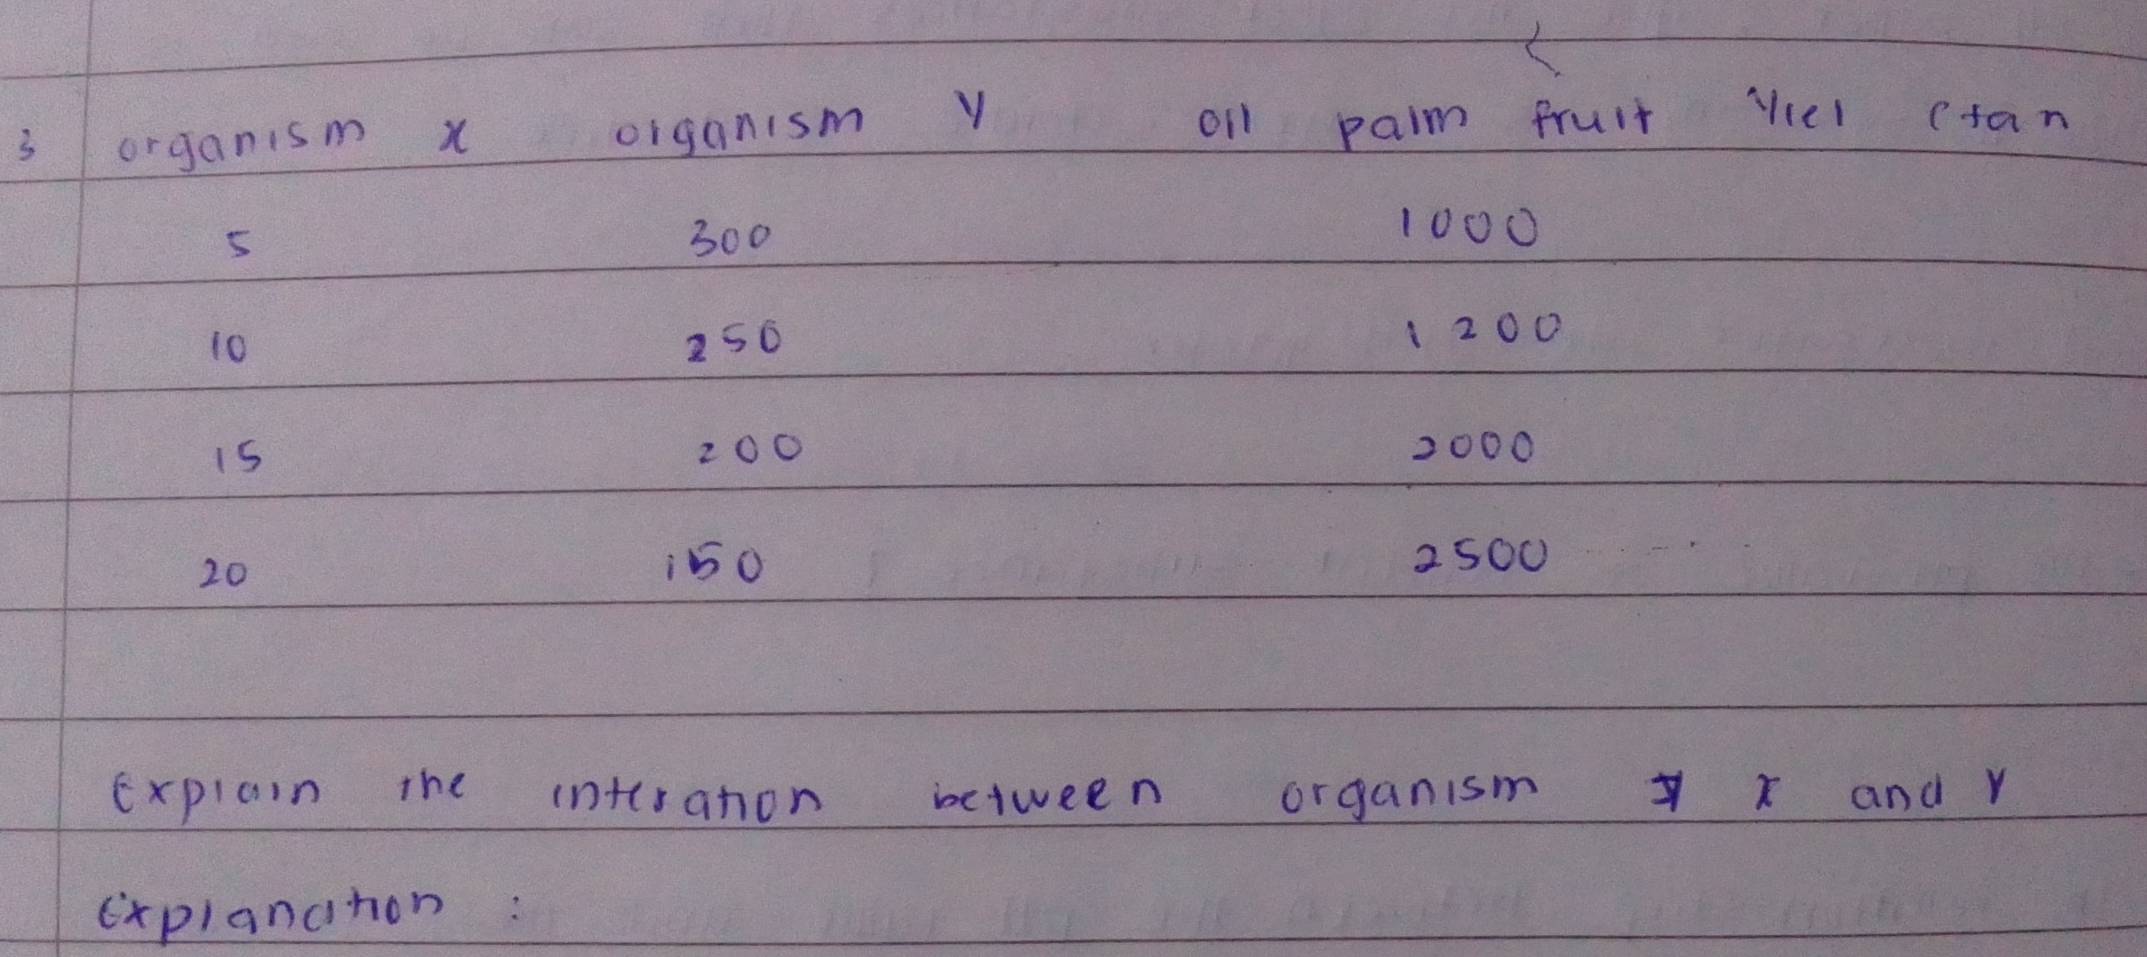 3 organism x organism y oil palm fruit Yiel (tan
5 300 1000
10 250 1200
15 200 2000
20 150 2500
Explain the interation between organism x and y
explanation :